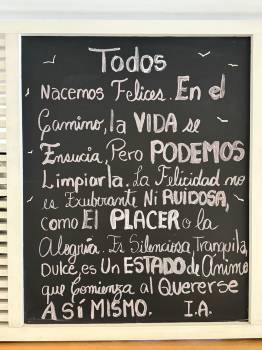 Todos
Nacemos Felices. En el
Camino, la VIDA se
Ensucia, Pero PODEMOS
Limpiarla. La Felicidad no
es Exuberante Ni RUIDOSA,
como El PLACER o la
Alegría. Es Silenciosa, Tranquila,
Dulce, es Un ESTADO de Ánimo
que Comienza al Quererse
ASÍ MISMO. I.A.